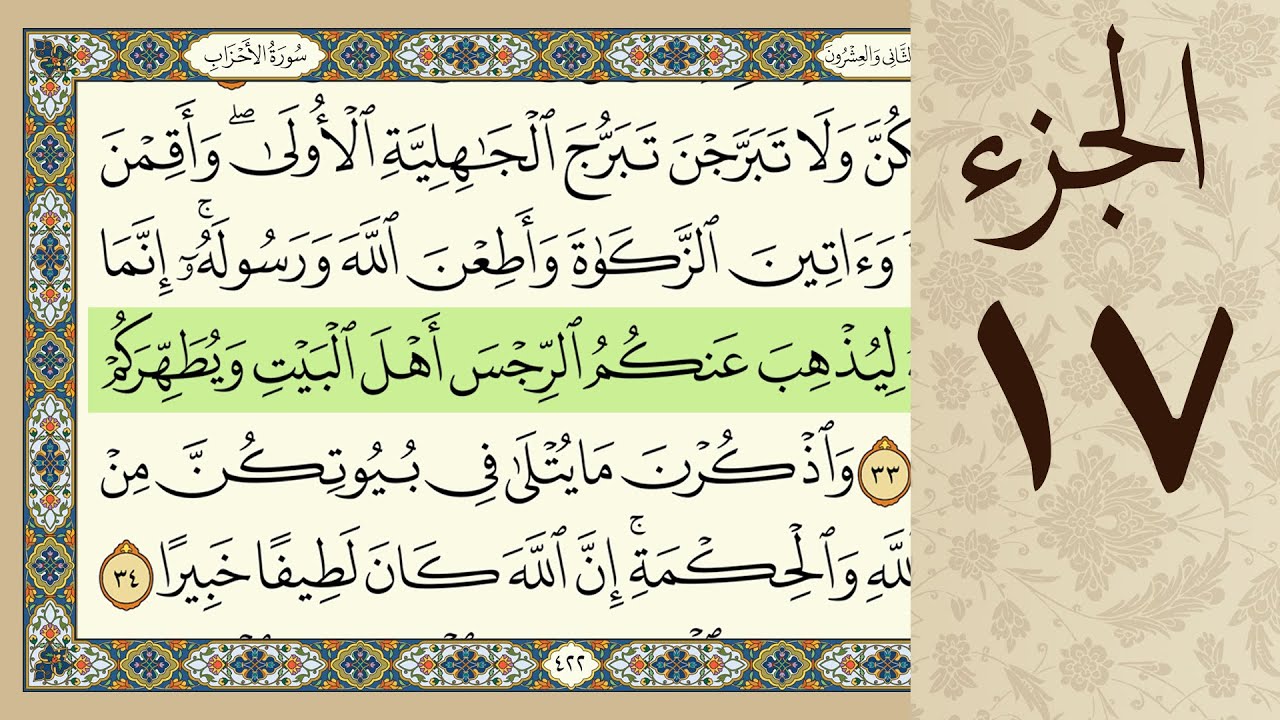 سُورَةُ الأَحْزَابِ
الثَّانِي وَالعِشْرُونَ
كُنَّ وَلَا تَبَرَّجْنَ تَبَرُّجَ ٱلْجَٰهِلِيَّةِ ٱلْأُولَىٰ ۖ وَأَقِمْنَ
وَءَاتِينَ ٱلزَّكَوٰةَ وَأَطِعْنَ ٱللَّهَ وَرَسُولَهُۥٓ ۚ إِنَّمَا
لِيُذْهِبَ عَنكُمُ ٱلرِّجْسَ أَهْلَ ٱلْبَيْتِ وَيُطَهِّرَكُمْ
٣٣ وَٱذْكُرْنَ مَا يُتْلَىٰ فِى بُيُوتِكُنَّ مِنْ
ٱللَّهِ وَٱلْحِكْمَةِ ۚ إِنَّ ٱللَّهَ كَانَ لَطِيفًا خَبِيرًا ٣٤
٤٢٢
الجزء
١٧